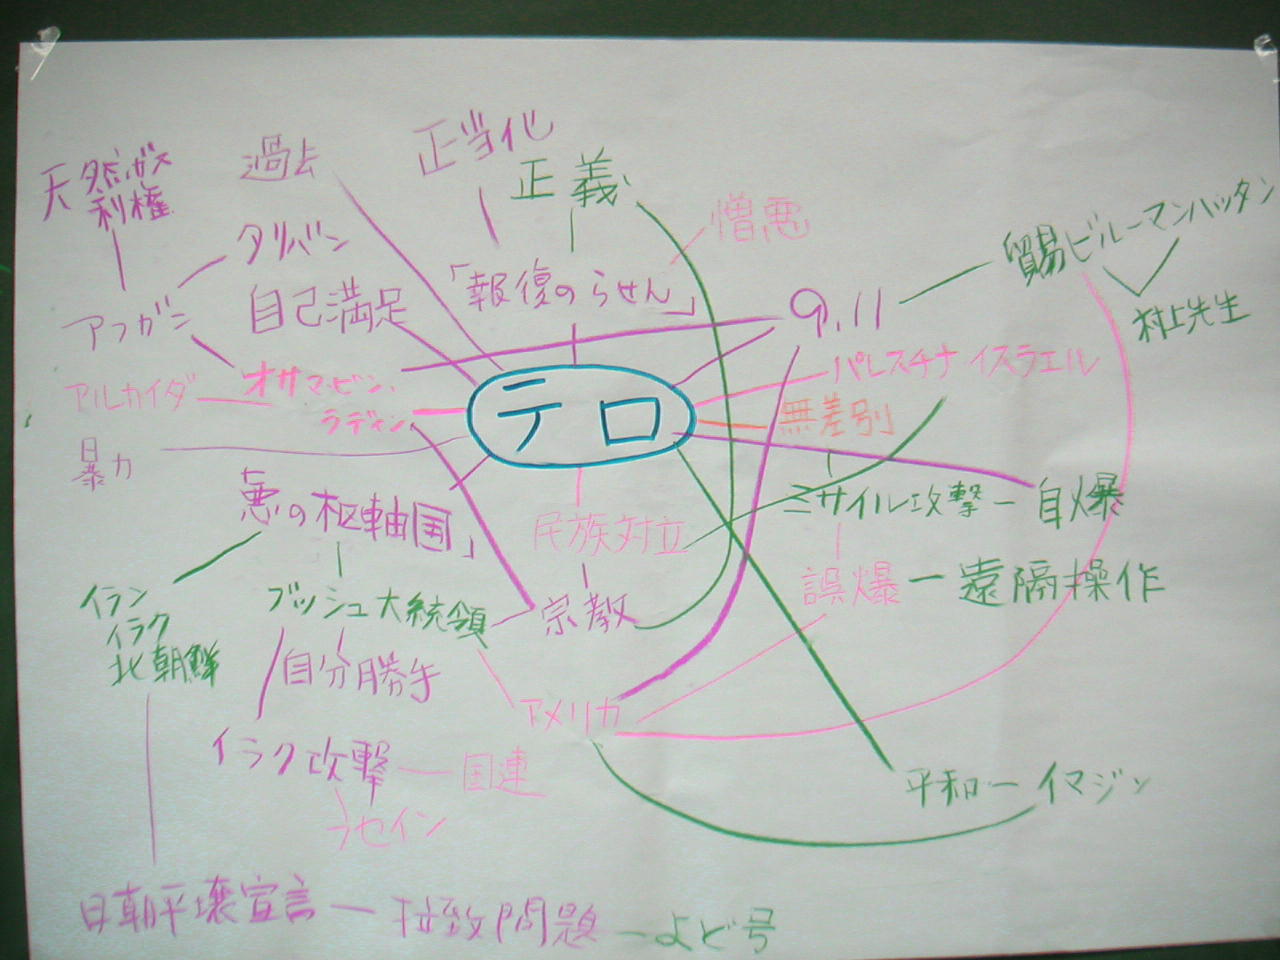 正当化
過去
天然ガス
利権
正義
憎悪
タリバン
「報復のらせん」
貿易ビルーマンハッタン
自己満足
アフガン
9.11
村上先生
パレスチナイスラエル
オサマ・ビン・
ラディン
アルカイダ
テロ
無差別
暴力
悪の枢軸国」
ミサイル攻撃ー自爆
民族対立
誤爆ー遠隔操作
イラン
イラク
北朝鮮
ブッシュ大統領
宗教
自分勝手
アメリカ
イラク攻撃
国連
フセイン
平和ーイマジン
日朝平壌宣言ー拉致問題ーよど号